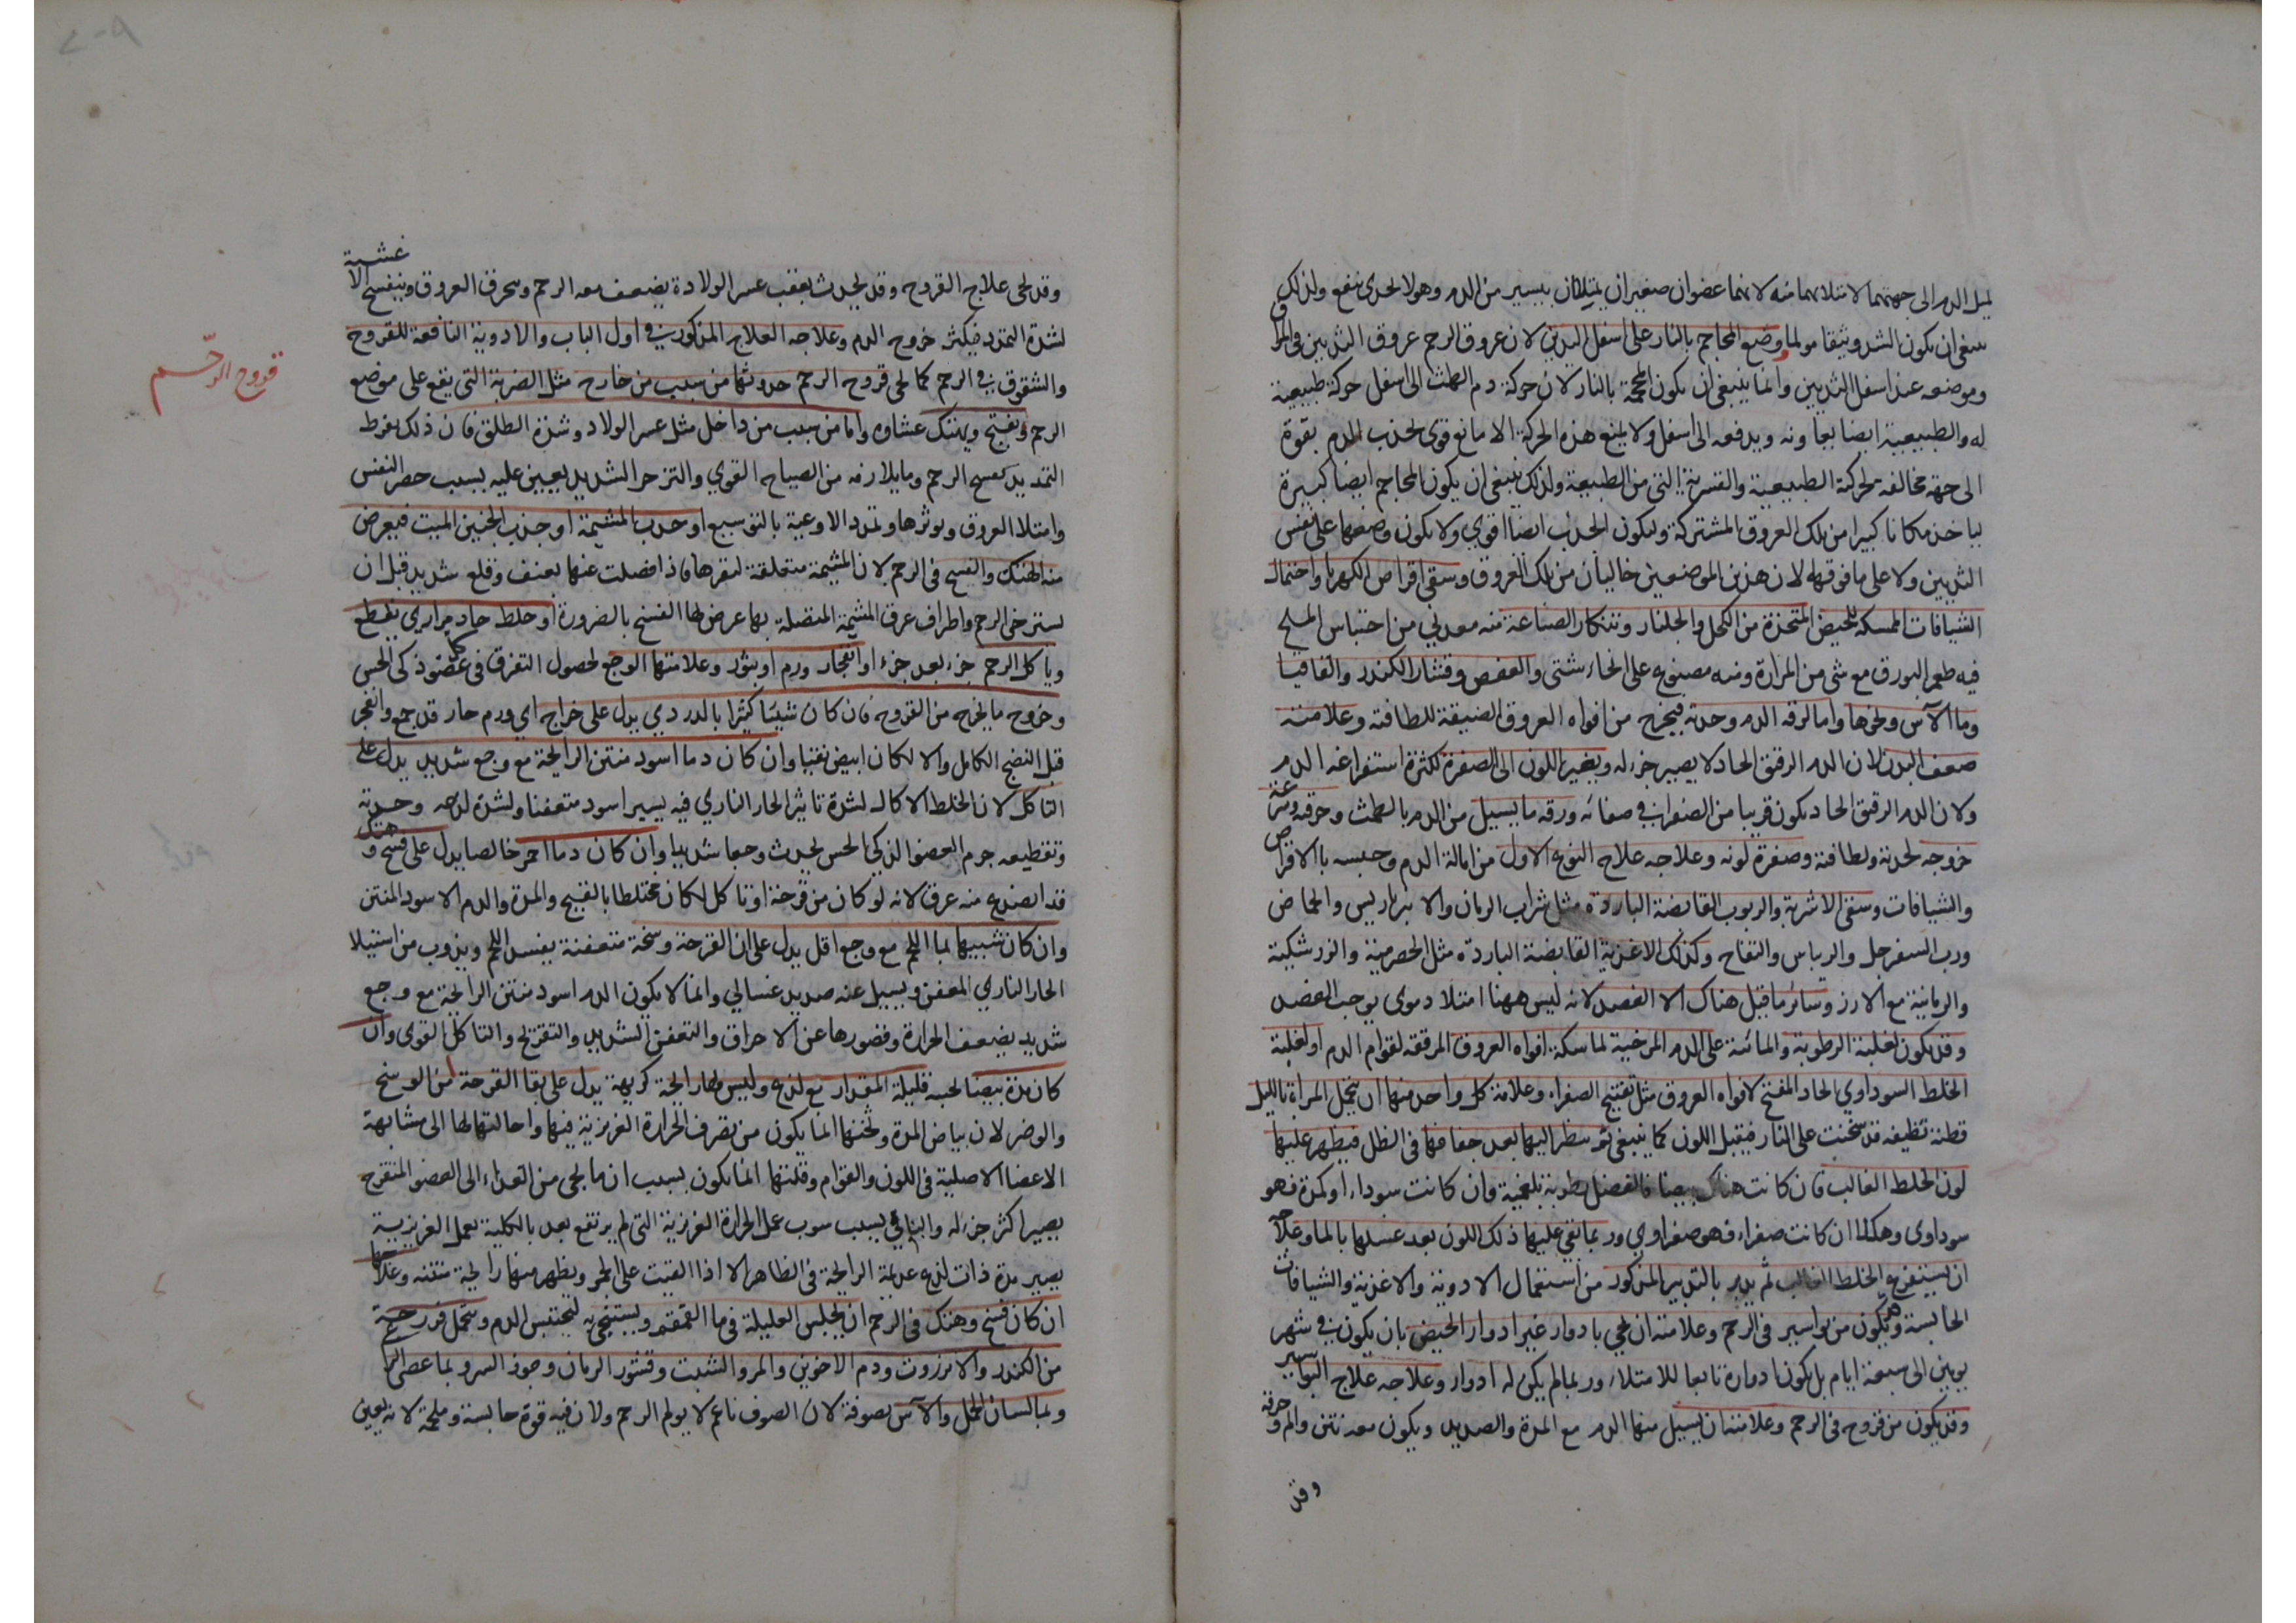 ليميل الدم الى جهتهما لامتلائهما منه لانهما عضوان صغيران يمتليان بيسير من الدم وهو لا يجدى بنفع ولذلك
ينبغى ان يكون الشد وثيقا مولما ووضع المحاجم بالنار على اسفل الثديين لان عروق الرحم عروق الثديين فى المراق
وموضعه عند اسفل الثديين وانما ينبغى ان يكون المحجمة بالنار لان حركة دم الطمث الى اسفل حركة طبيعية
له والطبيعية ايضا يعاونه ويدفعه الى اسفل ولا يمنع هذه الحركة الا مانع قوى يجذب الدم بقوة
الى جهة مخالفة لحركة الطبيعية والقسرية التى من الطبيعة ولذلك ينبغى ان يكون المحاجم ايضا كبيرة
لياخذ مكانا كبيرا من تلك العروق المشتركة وليكون الجذب ايضا اقوى ولا يكون وضعها على نفس
الثديين ولا على ما فوقهما لان هذين الموضعين خاليان من تلك العروق وسقى اقراص الكهربا واحتمال
الشيافات الممسكة للحيض المتخذة من الكحل والجلنار وتنكار الصناعة منه معدنى من اجناس الملح
فيه طعم البورق مع شى من المرارة ومنه مصنوع على انحاء شتى والعفص وقشار الكندر والقاقيا
وما الآس ونحوها واما لرقة الدم وحدته فيخرج من افواه العروق الضيقة للطافته وعلامته
ضعف البدن لان الدم الرقيق الحاد لا يصير جزء له وتغير اللون الى الصفرة لكثرة استفراغه الدم
ولان الدم الرقيق الحاد يكون قريبا من الصفرا فى صفائه ورقة ما يسيل من الدم بالطمث وحرقة وسرعة
خروجه لحدته ولطافته وصفرة لونه وعلاجه علاج النوع الاول من امالة الدم وحبسه بالاقراص
والشيافات وسقى الاشربة والربوب القابضة الباردة مثل شراب الرمان والانبرباريس والحماض
ورب السفرجل والريباس والتفاح وكذلك الاغذية القابضة الباردة مثل الحصرمية والزرشكية
والرمانية مع الارز وسائر ما قيل هناك الا الفصد لانه ليس ههنا امتلا دموى يوجب الفصد
وقد يكون لغلبة الرطوبة والمائية على الدم المرخية لماسكة افواه العروق المرققة لقوام الدم او لغلبة
الخلط السوداوي الحاد المفتح لافواه العروق مثل تفتيح الصفراء وعلامة كل واحد منها ان يتحمل المراة بالليل
قطنة نظيفة قد سخنت على النار فيقبل اللون كما ينبغى ثم ينظر اليها بعد جفافها فى الظل فيظهر عليها
لون الخلط الغالب فان كانت هناك بيضا فالفضل رطوبة بلغمية وان كانت سوداء او كمدة فهو
سوداوى وهكذا ان كانت صفراء فهو صفراوي وربما بقى عليها ذلك اللون بعد غسلها بالما وعلاجه
ان يستفرغ الخلط الغالب ثم يدبر بالتدبير المذكور من استعمال الادوية والاغذية والشيافات
الحابسة وقد يكون من بواسير فى الرحم وعلامته ان يجي بادوار غير ادوار الحيض بان يكون فى شهر
يومين الى سبعة ايام بل يكون ادواره تابعا للامتلاء وربما لم يكن له ادوار وعلاجه علاج البواسير
وقد يكون من قروح فى الرحم وعلامته ان يسيل منها الدم مع المدة والصديد ويكون معه نتن والم وحرقة
وقد
وقد يجى علاج القروح وقد يحدث بعقب عسر الولادة يضعف معه الرحم وينخرق العروق وينفسخ الا
غشية
لشدة التمدد فيكثر خروج الدم وعلاجه العلاج المذكور فى اول الباب والادوية النافعة للقروح
والشقوق فى الرحم كما يجى قروح الرحم حدوثها من سبب من خارج مثل الضربة التى يقع على موضع
قروح الرحم
الرحم وتفتح ويهتك غشاوه واما من سبب من داخل مثل عسر الولاد وشدة الطلق فان ذلك يفرط
التمديد يفسخ الرحم وما يلازمه من الصياح القوي والتزحر الشديد يعين عليه بسبب حصر النفس
وامتلا العروق وتوترها وتمدد الاوعية بالتوسيع او جذب المشيمة او جذب الجنين الميت فيعرض
منه الهتك والفسخ فى الرحم لان المشيمة متعلقة بنقرها فاذا فصلت عنها بعنف وقلع شديد قبل ان
يسترخى الرحم واطراف عرق المشيمة المتصلة بها عرض لها الفسخ بالضرورة او خلط حاد مراري يقطع
وياكل الرحم جزء بعد جزء او انفجار ورم او بثور وعلامتها الوجع لحصول التفرق فى عضو ذكى الحس
وخروج ما يخرج من القروح فان كان شيئا كثيرا بالدردي يدل على خراج اي ورم حار قد جمع وانفجر
قبل النضج الكامل والا لكان ابيض نقيا وان كان دما اسود منتن الرايحة مع وجع شديد يدل على
التاكل لان الخلط الاكال لشدة تاثير الحار الناري فيه يصير اسود متعفنا ولشدة لذعه وحدته
وتقطيعه جرم العضو الذكى الحس يحدث وجعا شديدا وان كان دما احمر خالصا يدل على فسخ وهتك
قد انصدع منه عرق لانه لو كان من قرحة او تاكل لكان مختلطا بالقيح والمدة والدم الاسود المنتن
وان كان شبيها بما اللحم مع وجع اقل يدل على ان القرحة وسخة متعفنة يفسد اللحم ويذوب من استيلا
الحار الناري المعفن ويسيل عنه صديد غسالي وانما لا يكون الدم اسود منتن الرايحة مع وجع
شديد لضعف الحرارة وقصورها عن الاحراق والتعفن الشديد والتقريح والتاكل القوى وان
كان مدة بيضا لحبه قليلة المقدار مع لذع وليس لها رايحة كريهة يدل على نقا القرحة من الوسخ
والوضر لان بياض المدة وثخنها انما يكون من تصرف الحرارة الغريزية فيها واحالتها لها الى مشابهة
الاعضا الاصلية فى اللون والقوام وقلتها انما يكون بسبب ان ما يجى من الغذاء الى العضو المتقرح
يصير اكثر جزء له والباقى بسبب شوب عمل الحرارة الغريزية التى لم يرتفع بعد بالكلية بعمل الغريزية
يصير مدة ذات لذع عديمة الرايحة فى الظاهر الا اذا القيت على الجمر ويظهر منها رايحة منتنة وعلاجها
ان كان فسخ وهتك فى الرحم ان يجلس العليلة فى ما القمقم ويستنجى به ليحتبس الدم ويتحمل فرزجة
من الكندر والانزروت ودم الاخوين والمر والشبت وقشور الرمان وجوز السرو بما عصى الراعى
وبما لسان الحمل والآس بصوفة لان الصوف ناعم لا يولم الرحم ولان فيه قوة حابسة وملحمة لانه يعين